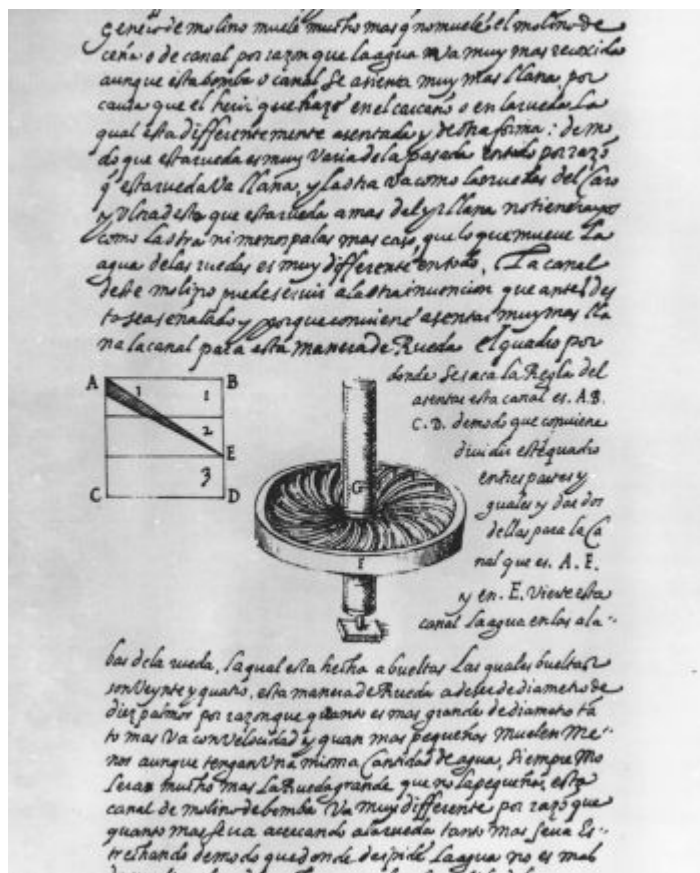 genero de molino muele mucho mas q̃ no muele el molino de
ceña o de canal por razon que la agua va muy mas recoxida
aunque esta bomba o canal se asienta muy mas llana, por
causa que el herir que haze en el carcano o en la rueda. La
qual esta differentemente asentada y de otra forma: de mo
do que esta rueda es muy varia de la pasada en todo por razõ
q̃ esta rueda va llana, y la otra va como las ruedas del Caro
y ultra desto que esta rueda a mas del yr llana no tiene rayos
como la otra ni menos palas mas caso, que lo que mueve la
agua de las ruedas es muy differente en todo. La canal
deste molino puede servir a la otra invencion que antes des
to se a señalado y porque conviene asentar muy mas lla
na la canal para esta manera de Rueda el quadro por
donde se saca la Regla del
asentar esta canal es. A.B.
C.D. de modo que conviene
dividir este quadro
en tres partes y
guales y dar dos
dellas para la Ca
nal que es. A.E.
y en. E. Vierte esta
canal la agua en los ala-
A
B
C
D
E
1
1
2
3
G
F
bas de la rueda, la qual esta hecha a bueltas las quales bueltas
son veynte y quatro, esta manera de Rueda a de ser de diametro de
diez palmos por razon que quanto es mas grande de diametro tã
to mas va con velocidad y quan mas pequeñas muelen me-
nos aunque tengan una misma cantidad de agua, siempre mo
lera mucho mas la Rueda grande que no la pequeña, esta
canal de molino de bomba va muy differente por razõ que
quanto mas se va acercando a la rueda tanto mas se va es-
trechando de modo que donde despide la agua no es mas